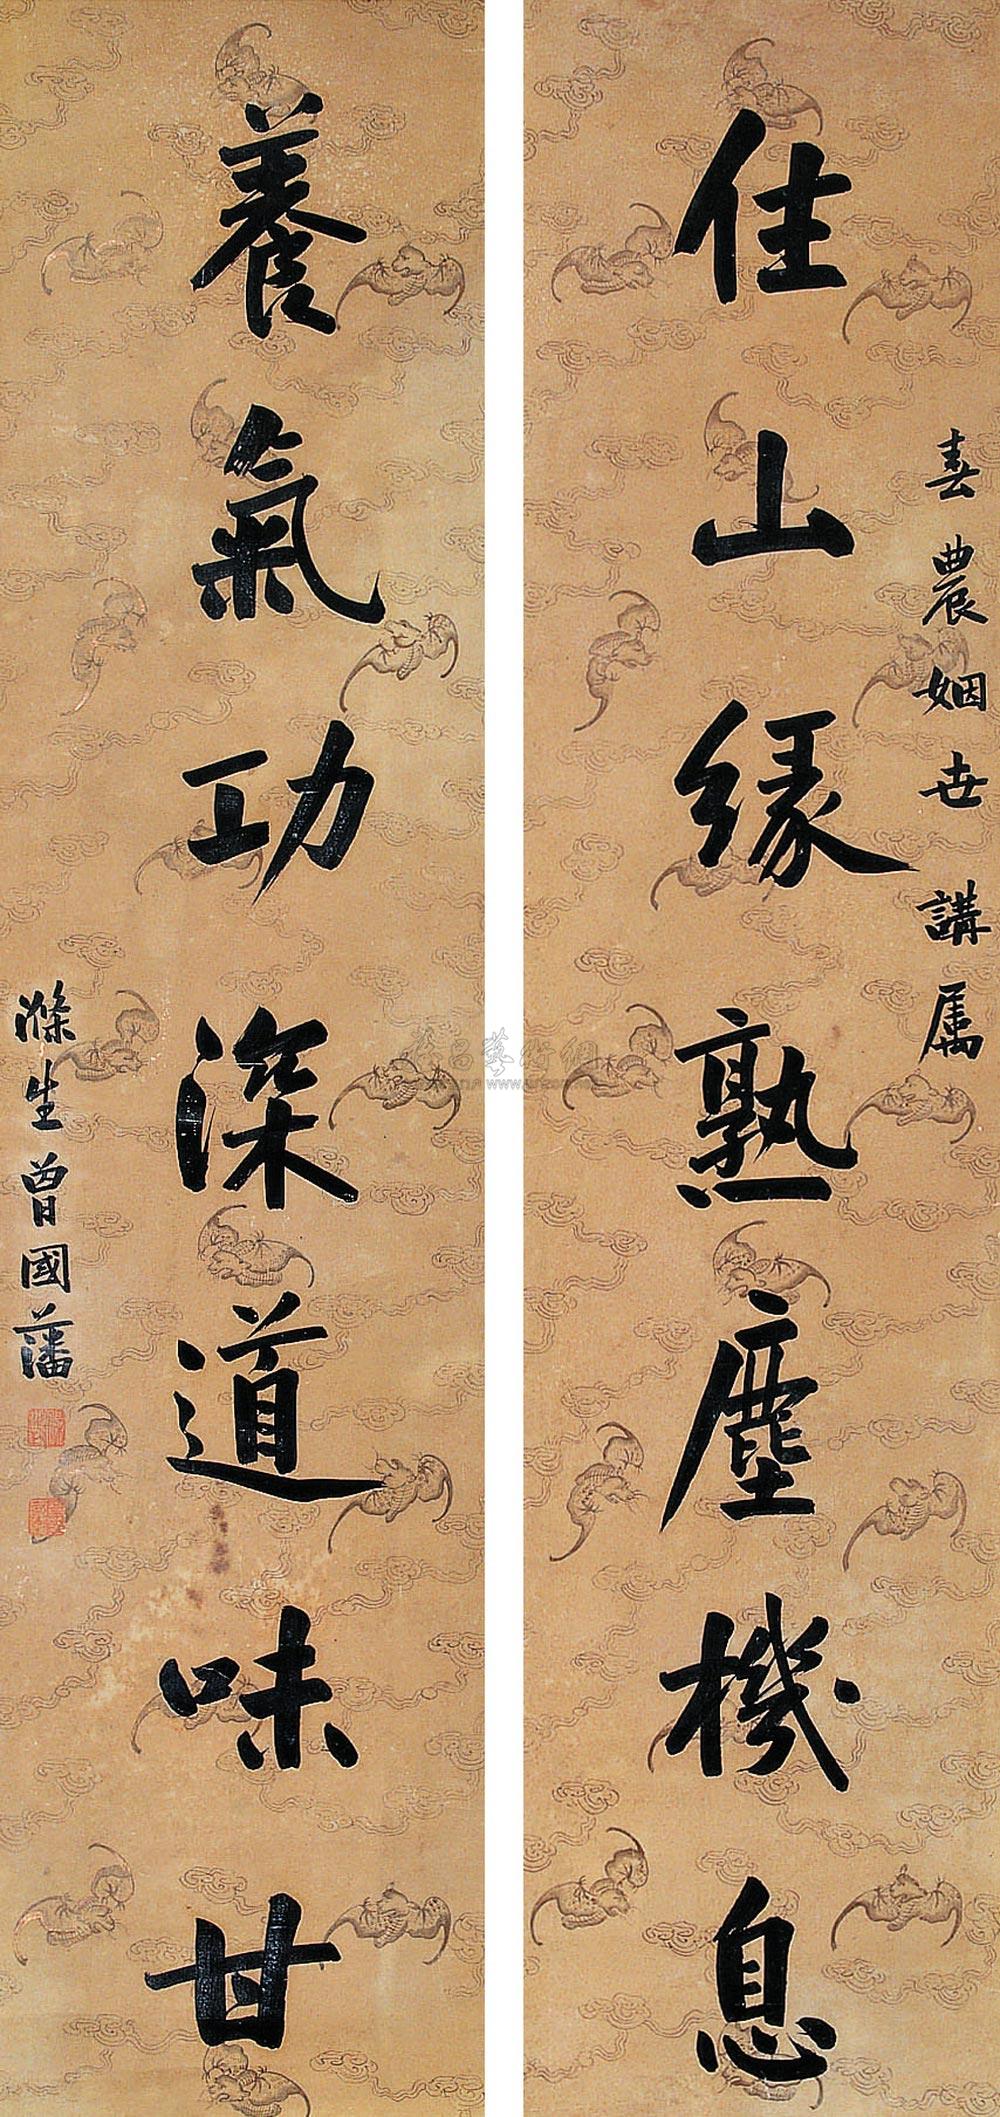 住山緣熟塵機息
春農姻世講屬
養氣功深道味甘
滌生曾國藩